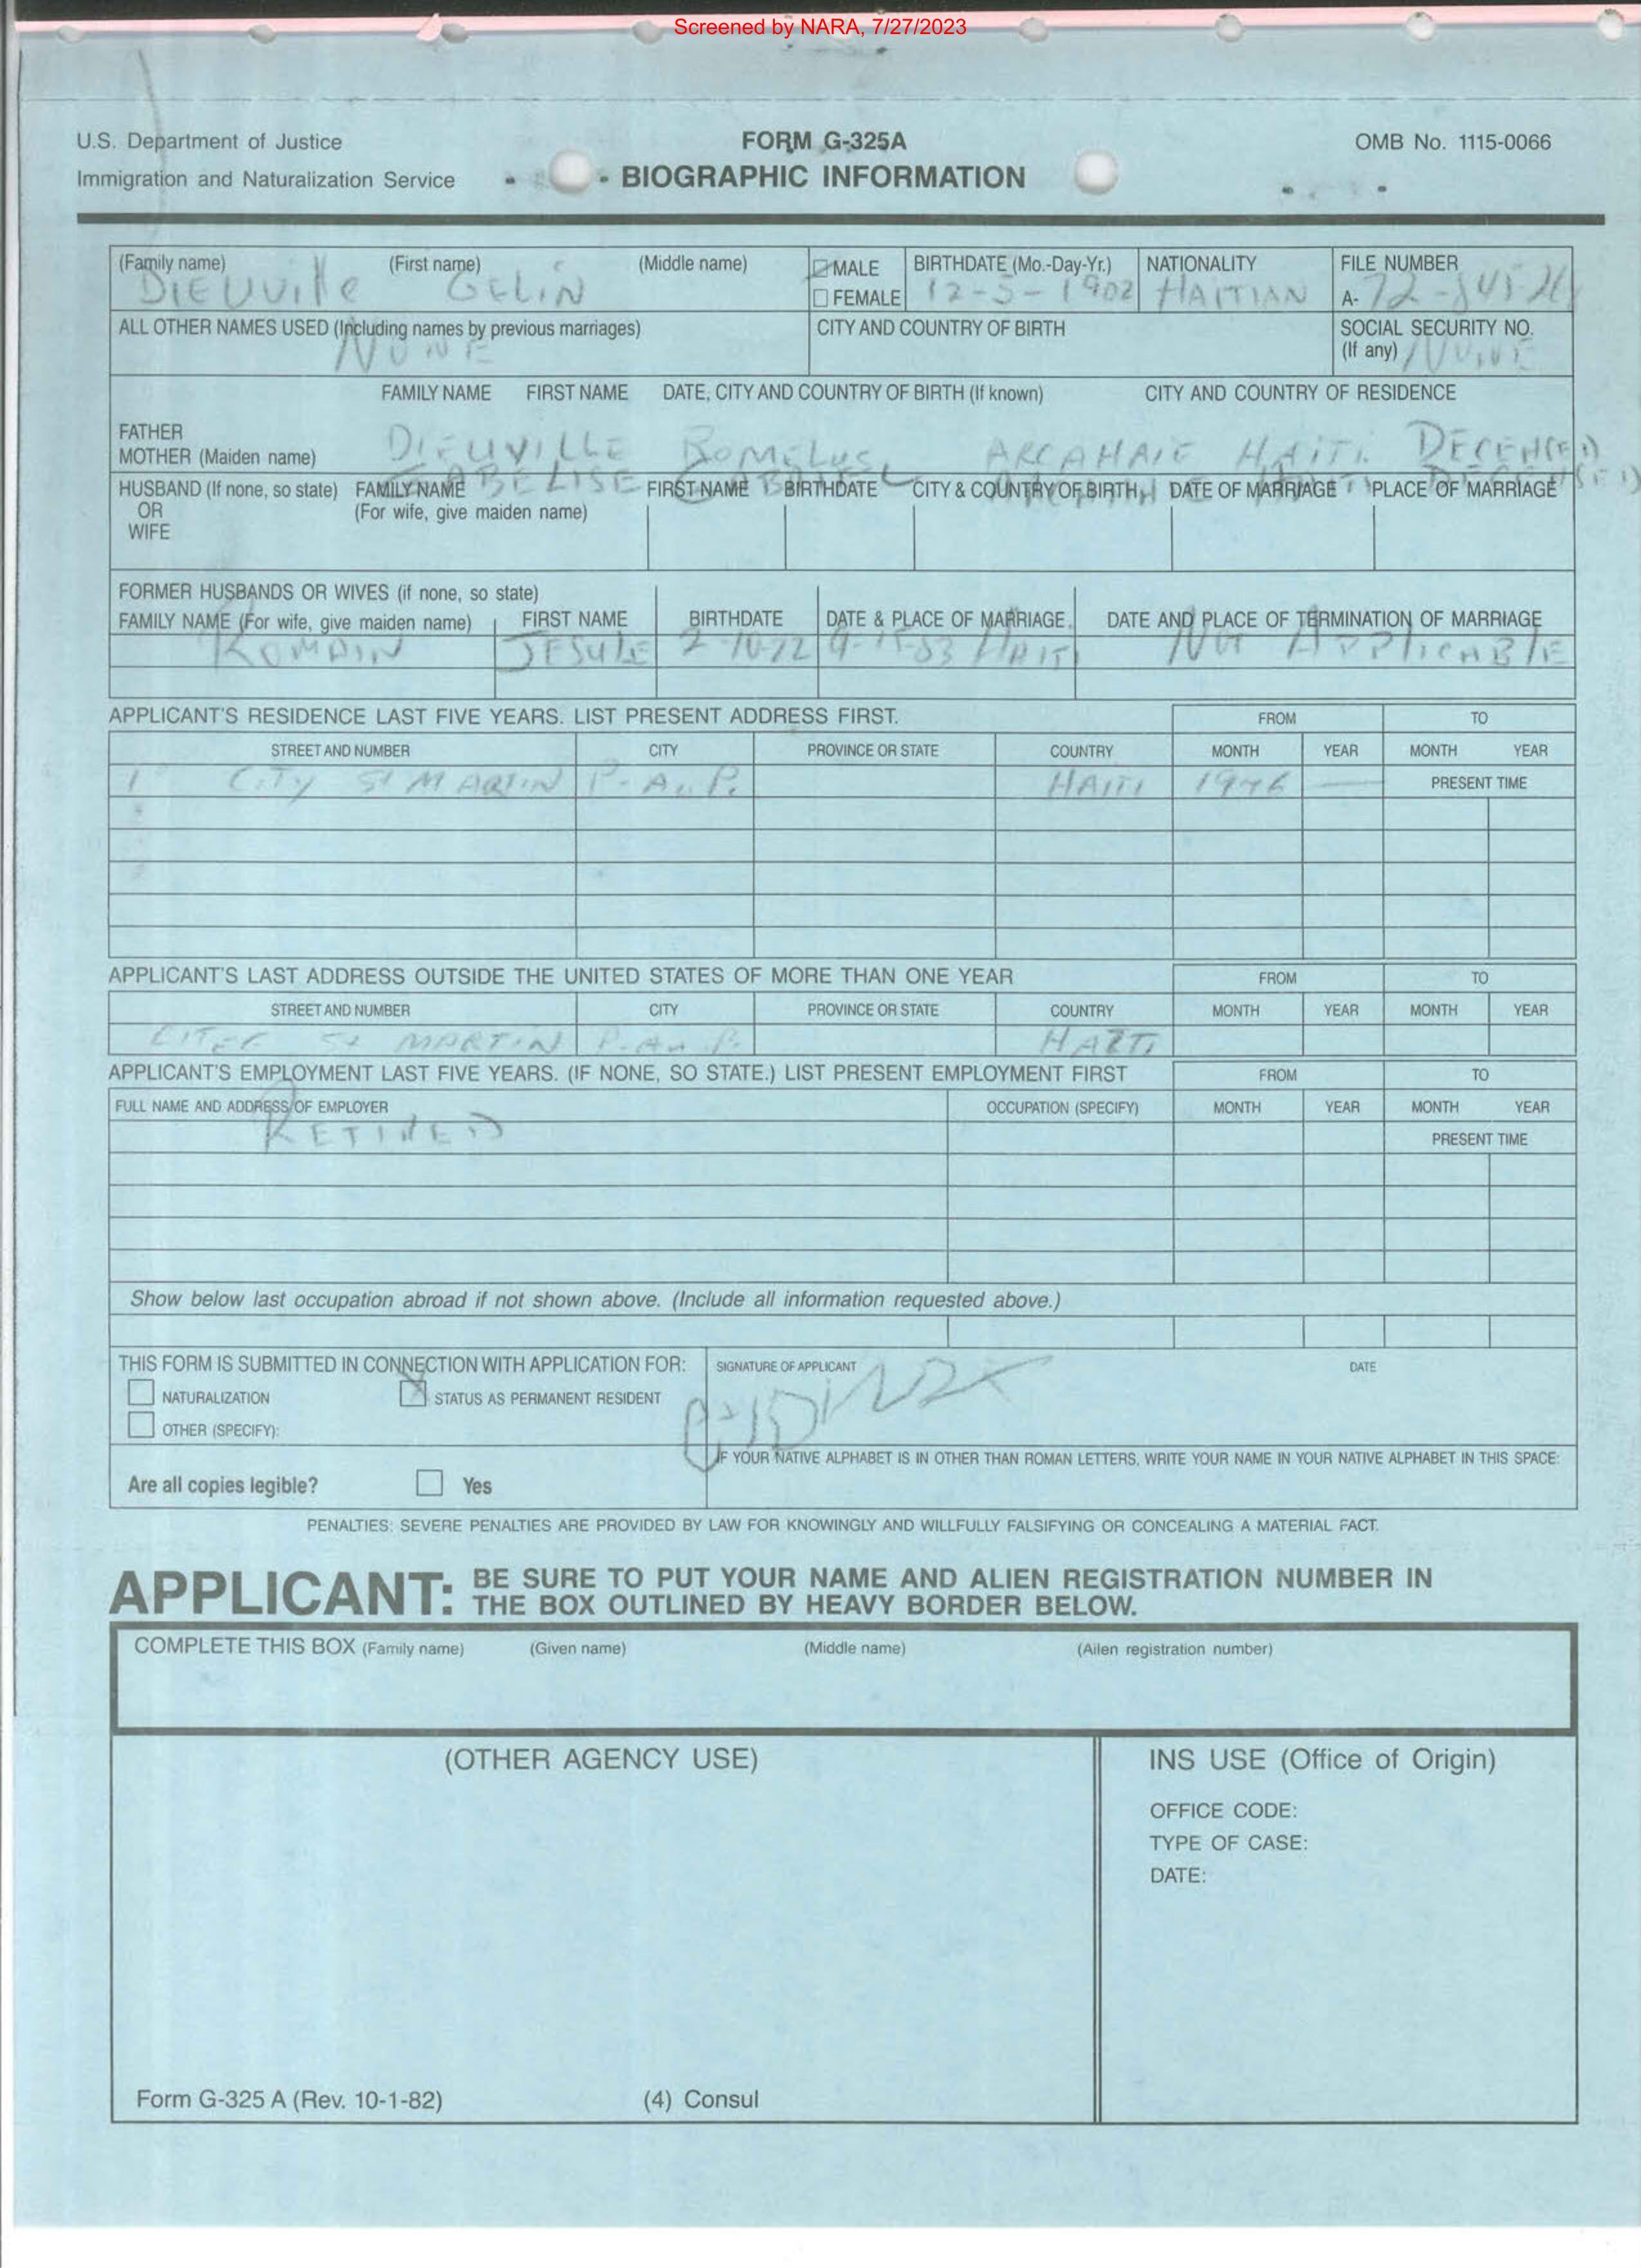 Screened by NARA, 7/27/2023
U.S. Department of Justice
Immigration and Naturalization Service
FORM G-325A
BIOGRAPHIC INFORMATION
OMB No. 1115-0066
(Family name) (First name) (Middle name) MALE FEMALE BIRTHDATE (Mo.-Day-Yr.) NATIONALITY FILE NUMBER
DIEUVille GELIN 12-5-1902 HAITIAN A-72-
ALL OTHER NAMES USED (Including names by previous marriages) CITY AND COUNTRY OF BIRTH SOCIAL SECURITY NO. (If any)
NONE NONE
FAMILY NAME FIRST NAME DATE, CITY AND COUNTRY OF BIRTH (If known) CITY AND COUNTRY OF RESIDENCE
FATHER
MOTHER (Maiden name)
DIEUVILLE ROMELUS ARCAHAIE HAITI
HUSBAND (If none, so state) OR WIFE
FAMILY NAME (For wife, give maiden name) FIRST NAME BIRTHDATE CITY & COUNTRY OF BIRTH DATE OF MARRIAGE PLACE OF MARRIAGE
FORMER HUSBANDS OR WIVES (if none, so state)
FAMILY NAME (For wife, give maiden name) FIRST NAME BIRTHDATE DATE & PLACE OF MARRIAGE DATE AND PLACE OF TERMINATION OF MARRIAGE
ROMAIN 2-10-22 HAITI NOT APPLICABLE
APPLICANT'S RESIDENCE LAST FIVE YEARS. LIST PRESENT ADDRESS FIRST. FROM TO
STREET AND NUMBER CITY PROVINCE OR STATE COUNTRY MONTH YEAR MONTH YEAR
1 CITY ST MARTIN P-Au P. HAITI PRESENT TIME
APPLICANT'S LAST ADDRESS OUTSIDE THE UNITED STATES OF MORE THAN ONE YEAR FROM TO
STREET AND NUMBER CITY PROVINCE OR STATE COUNTRY MONTH YEAR MONTH YEAR
CITEE St MARTIN P-Au P. HAITI
APPLICANT'S EMPLOYMENT LAST FIVE YEARS. (IF NONE, SO STATE.) LIST PRESENT EMPLOYMENT FIRST FROM TO
FULL NAME AND ADDRESS OF EMPLOYER OCCUPATION (SPECIFY) MONTH YEAR MONTH YEAR
RETIRED PRESENT TIME
Show below last occupation abroad if not shown above. (Include all information requested above.)
THIS FORM IS SUBMITTED IN CONNECTION WITH APPLICATION FOR:
NATURALIZATION STATUS AS PERMANENT RESIDENT
OTHER (SPECIFY):
SIGNATURE OF APPLICANT DATE
Are all copies legible? Yes
IF YOUR NATIVE ALPHABET IS IN OTHER THAN ROMAN LETTERS, WRITE YOUR NAME IN YOUR NATIVE ALPHABET IN THIS SPACE:
PENALTIES: SEVERE PENALTIES ARE PROVIDED BY LAW FOR KNOWINGLY AND WILLFULLY FALSIFYING OR CONCEALING A MATERIAL FACT.
APPLICANT: BE SURE TO PUT YOUR NAME AND ALIEN REGISTRATION NUMBER IN
THE BOX OUTLINED BY HEAVY BORDER BELOW.
COMPLETE THIS BOX (Family name) (Given name) (Middle name) (Alien registration number)
(OTHER AGENCY USE)
INS USE (Office of Origin)
OFFICE CODE:
TYPE OF CASE:
DATE:
Form G-325 A (Rev. 10-1-82) (4) Consul